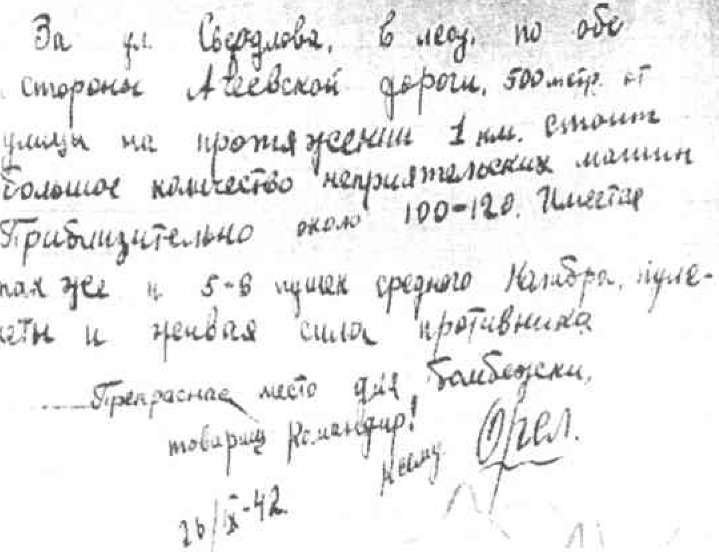 За ул. Свердлова, в лесу, по обе
стороны Агеевской дороги, 500 метр. от
улицы на протяжении 1 км. стоит
большое количество неприятельских машин
Приблизительно около 100-120. Имеется
так же и 5-6 пушек средного калибра, пуле-
меты и живая сила противника
Прекрасное место для бомбежски,
товарищ командир!
Орел.
26/IX-42.